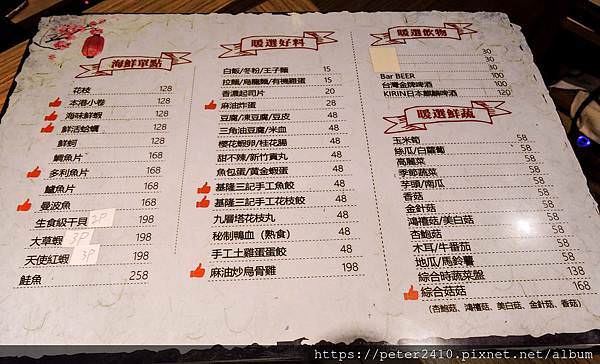 海鮮單點
花枝 128
本港小卷 128
海味鮮蝦 128
鮮活蛤蠣 128
鮮蚵 128
鯛魚片 168
多利魚片 168
鱸魚片 168
曼波魚 168
生食級干貝 2P 198
大草蝦 5P 198
天使紅蝦 3P 198
鮭魚 258
暖選好料
白飯/冬粉/王子麵 15
拉麵/烏龍麵/有機雞蛋 15
香濃起司片 20
麻油炸蛋 28
豆腐/凍豆腐/豆皮 48
三角油豆腐/米血 48
櫻花蝦卵/桂花腸 48
甜不辣/新竹貢丸 48
魚包蛋/黃金蝦蛋 48
基隆三記手工魚餃 48
基隆三記手工花枝餃 48
九層塔花枝丸 48
秘制鴨血（熟食） 48
手工土雞蛋蛋餃 48
麻油炒烏骨雞 198
暖選飲物
30
30
Bar BEER 100
台灣金牌啤酒 100
KIRIN日本麒麟啤酒 120
暖選鮮蔬
玉米筍 58
絲瓜/白蘿蔔 58
高麗菜 58
季節蔬菜 58
芋頭/南瓜 58
香菇 58
金針菇 58
鴻禧菇/美白菇 58
杏鮑菇 58
木耳/牛番茄 58
地瓜/馬鈴薯 58
綜合時蔬菜盤 138
綜合菇菇 168
(杏鮑菇、鴻禧菇、美白菇、金針菇、香菇)
https://peter2410.pixnet.net/album